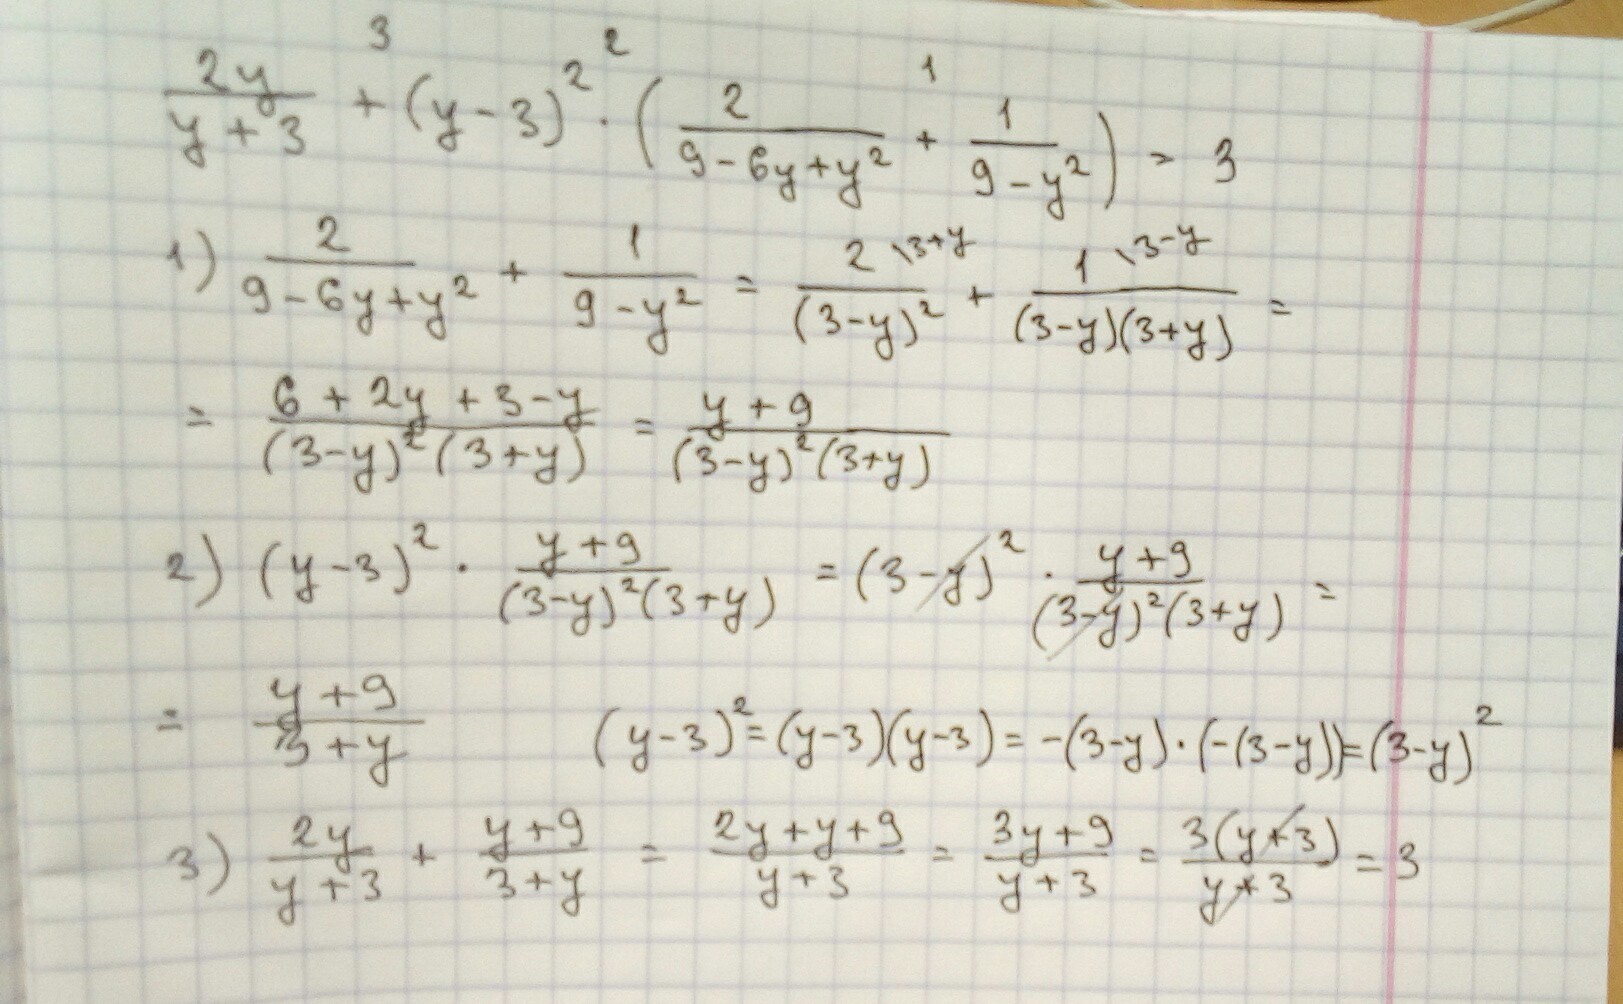 3 2 1
2y/(y+3) + (y-3)² · (2/(9-6y+y²) + 1/(9-y²)) = 3
1) 2/(9-6y+y²) + 1/(9-y²) = 2\3+y/(3-y)² + 1\3-y/((3-y)(3+y)) =
= (6+2y+3-y)/((3-y)²(3+y)) = (y+9)/((3-y)²(3+y))
2) (y-3)² · (y+9)/((3-y)²(3+y)) = (3-y)² · (y+9)/((3-y)²(3+y)) =
= (y+9)/(3+y) (y-3)² = (y-3)(y-3) = -(3-y)·(-(3-y)) = (3-y)²
3) 2y/(y+3) + (y+9)/(3+y) = (2y+y+9)/(y+3) = (3y+9)/(y+3) = 3(y+3)/(y+3) = 3